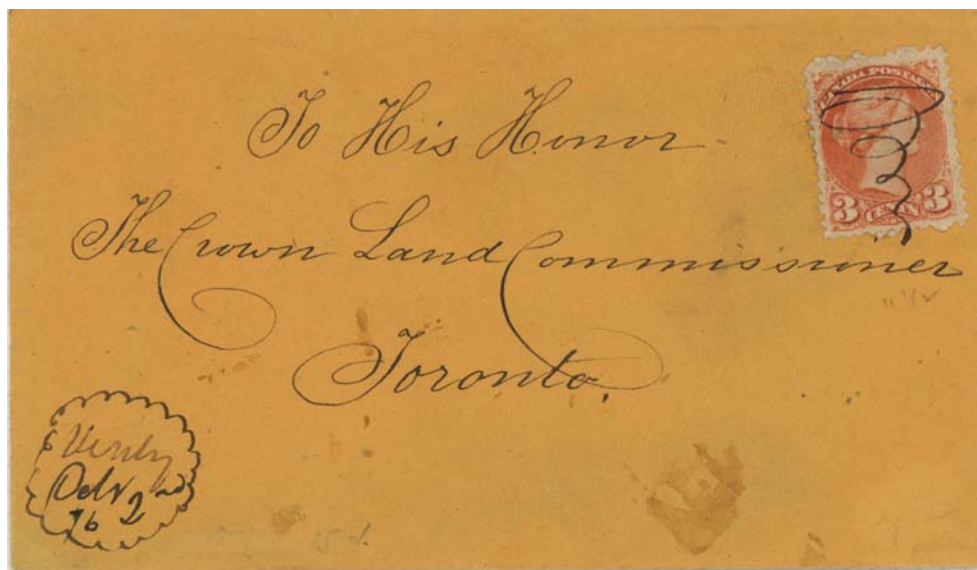 CANADA POSTAGE
3 CENTS 3
To His Honor
The Crown Land Commissioner
Toronto.
Octr 2nd
76